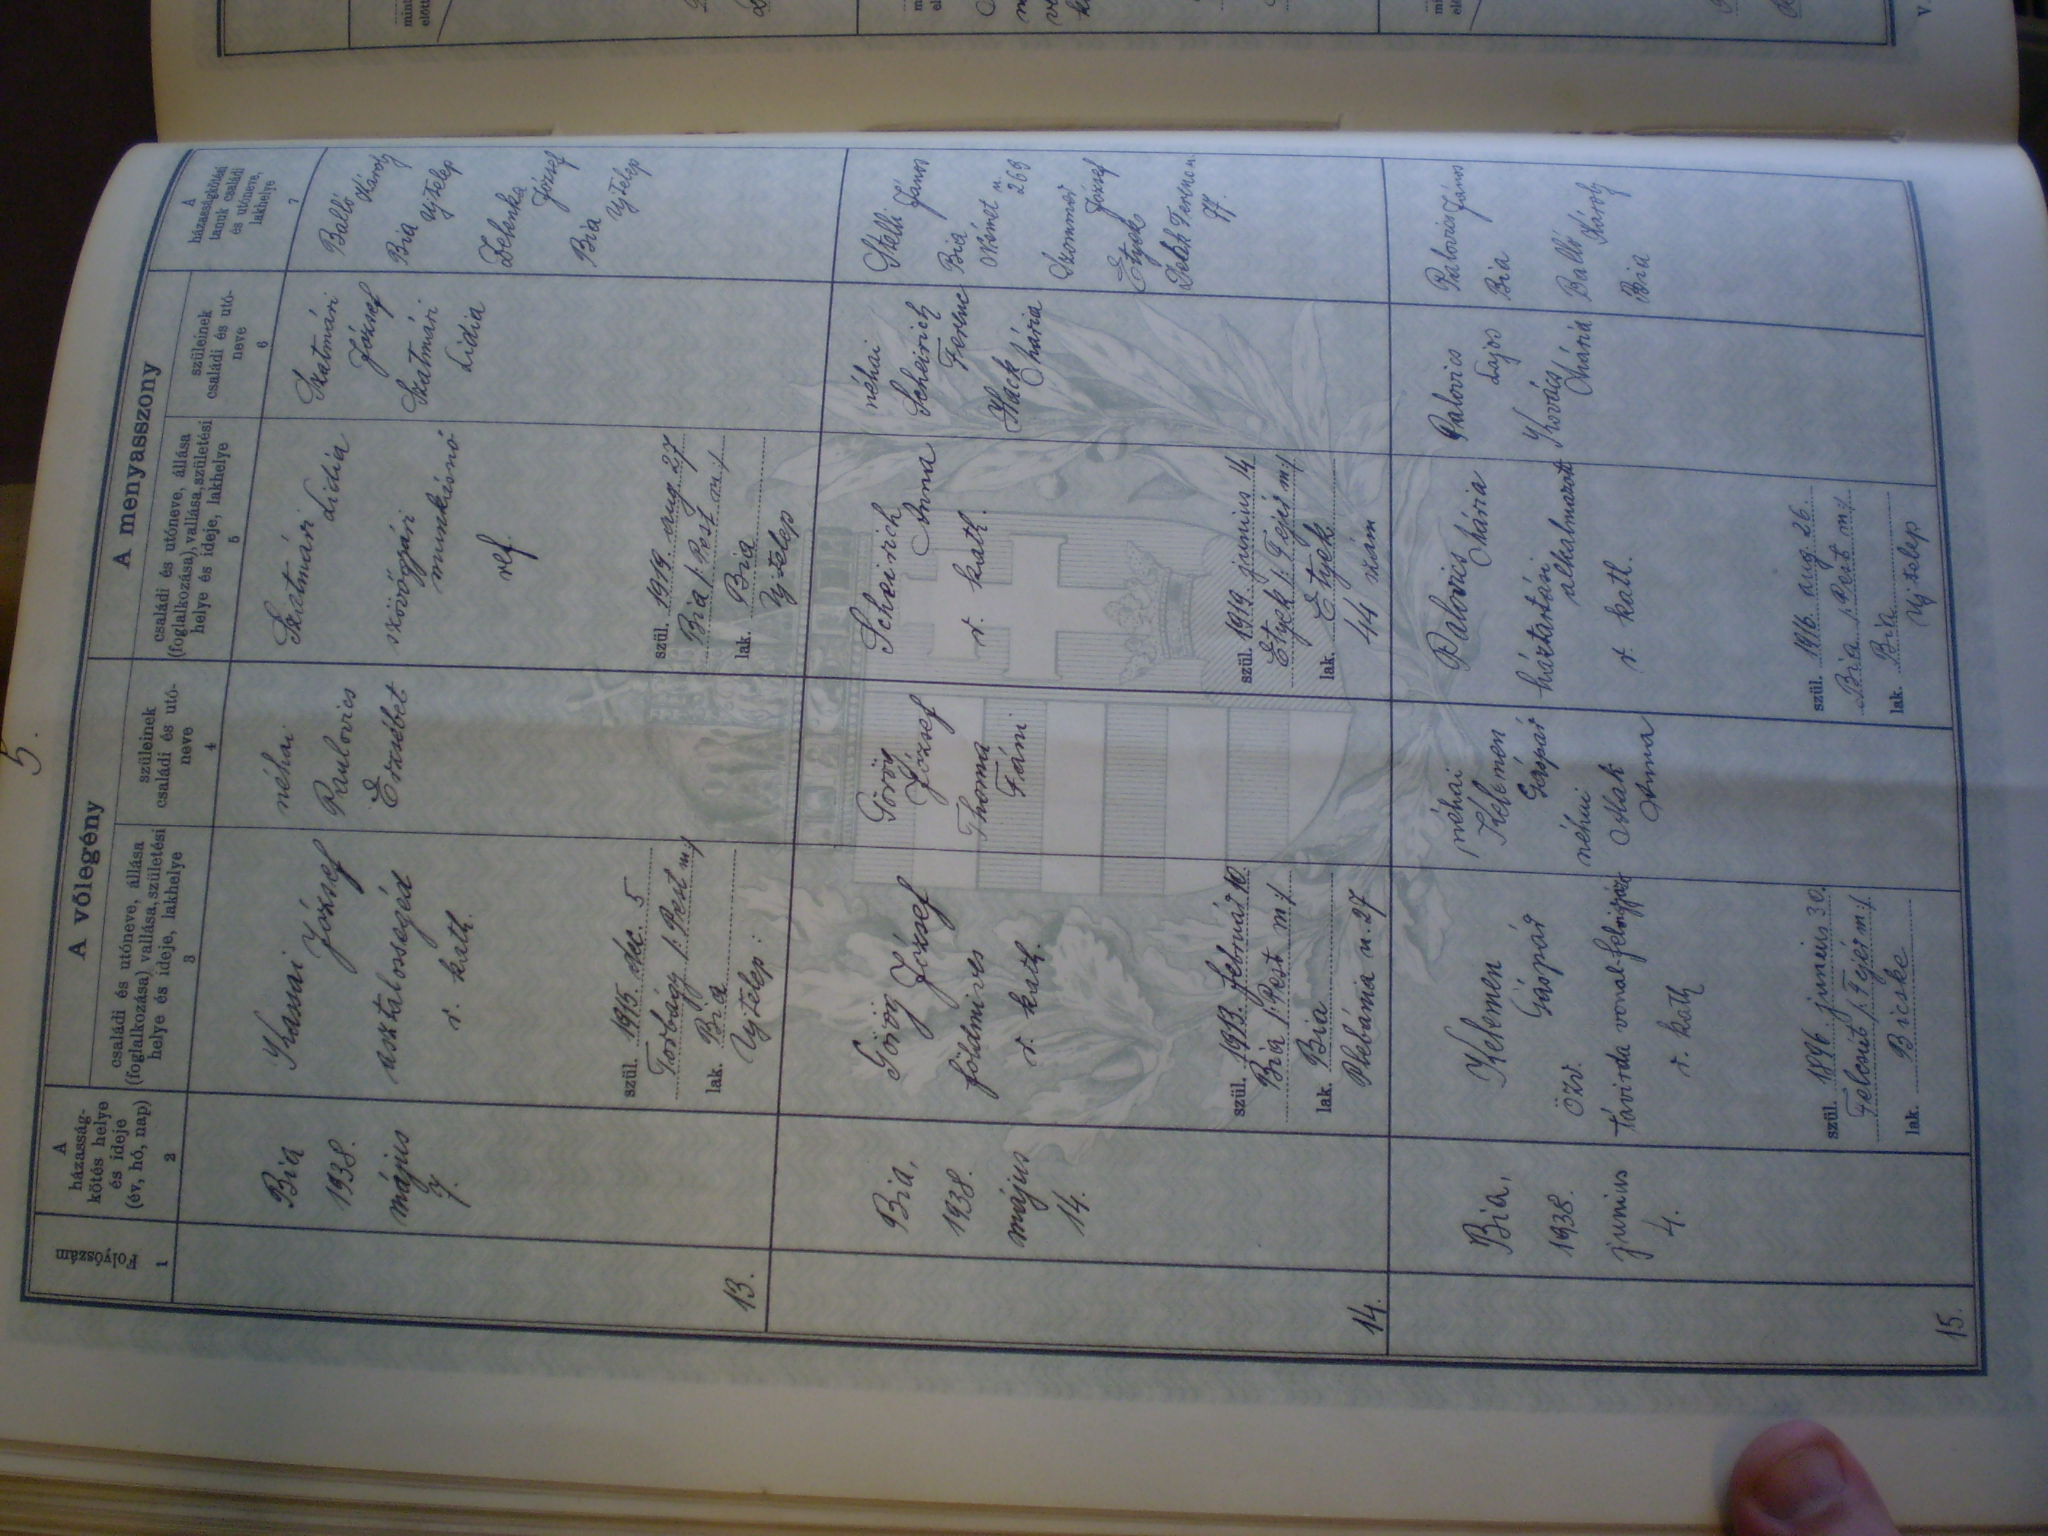 5.
Folyószám
1
A
házasság-
kötés helye
és ideje
(év, hó, nap)
2
A vőlegény
családi és utóneve, állása
(foglalkozása) vallása, születési
helye és ideje, lakhelye
3
szüleinek
családi és utó-
neve
4
A menyasszony
családi és utóneve, állása
(foglalkozása), vallása, születési
helye és ideje, lakhelye
5
szüleinek
családi és utó-
neve
6
A
házasságkötési
tanuk családi
és utóneve,
lakhelye
7
13.
Bia
1938.
május
7.
Kassai
József
asztalossegéd
r. kath.
szül. 1915. dec. 5
Torbágy /: Pest m:/
lak. Bia
Ujtelep:
néhai
Paulovics
Erzsébet
Szatmári
Lidia
szövőgyári
munkásnő
ref.
szül. 1919. aug. 27
Bia /: Pest m:/
lak. Bia
Ujtelep
Szatmári
József
Szatmári
Lidia
Balló
Károly
Bia ujtelep
József
Bia ujtelep
14.
Bia,
1938.
május
14.
Görög
József
földmíves
r. kath.
szül. 1913. február 10.
Bia /: Pest m:/
lak. Bia
Plébánia u. 27
Görög
József
Thoma
Fáni
Scheirich
Anna
r. kath.
szül. 1919. junius 14
Etyek /: Fejér m:/
lak. Etyek
44 szám
néhai
Scheirich
Ferenc
Hack
Mária
Stelli János
Bia
Német u.
269
József
Etyek
15.
Bia,
1938.
junius
4.
Kelemen
Gáspár
özv.
távirda vonal-felvigyázó
r. kath
szül. 1896. junius 30.
Felcsút /: Fejér m:/
lak. Bicske
néhai
Kelemen
Gáspár
néhai
Mak
Anna
Palovics
Mária
háztartási
alkalmazott
r. kath.
szül. 1916. aug 26.
Bia /: Pest m:/
lak. Bia
Ujtelep
Palovics
Lajos
Kovács
Mária
Palovics
János
Bia
Balló
Károly
Bia